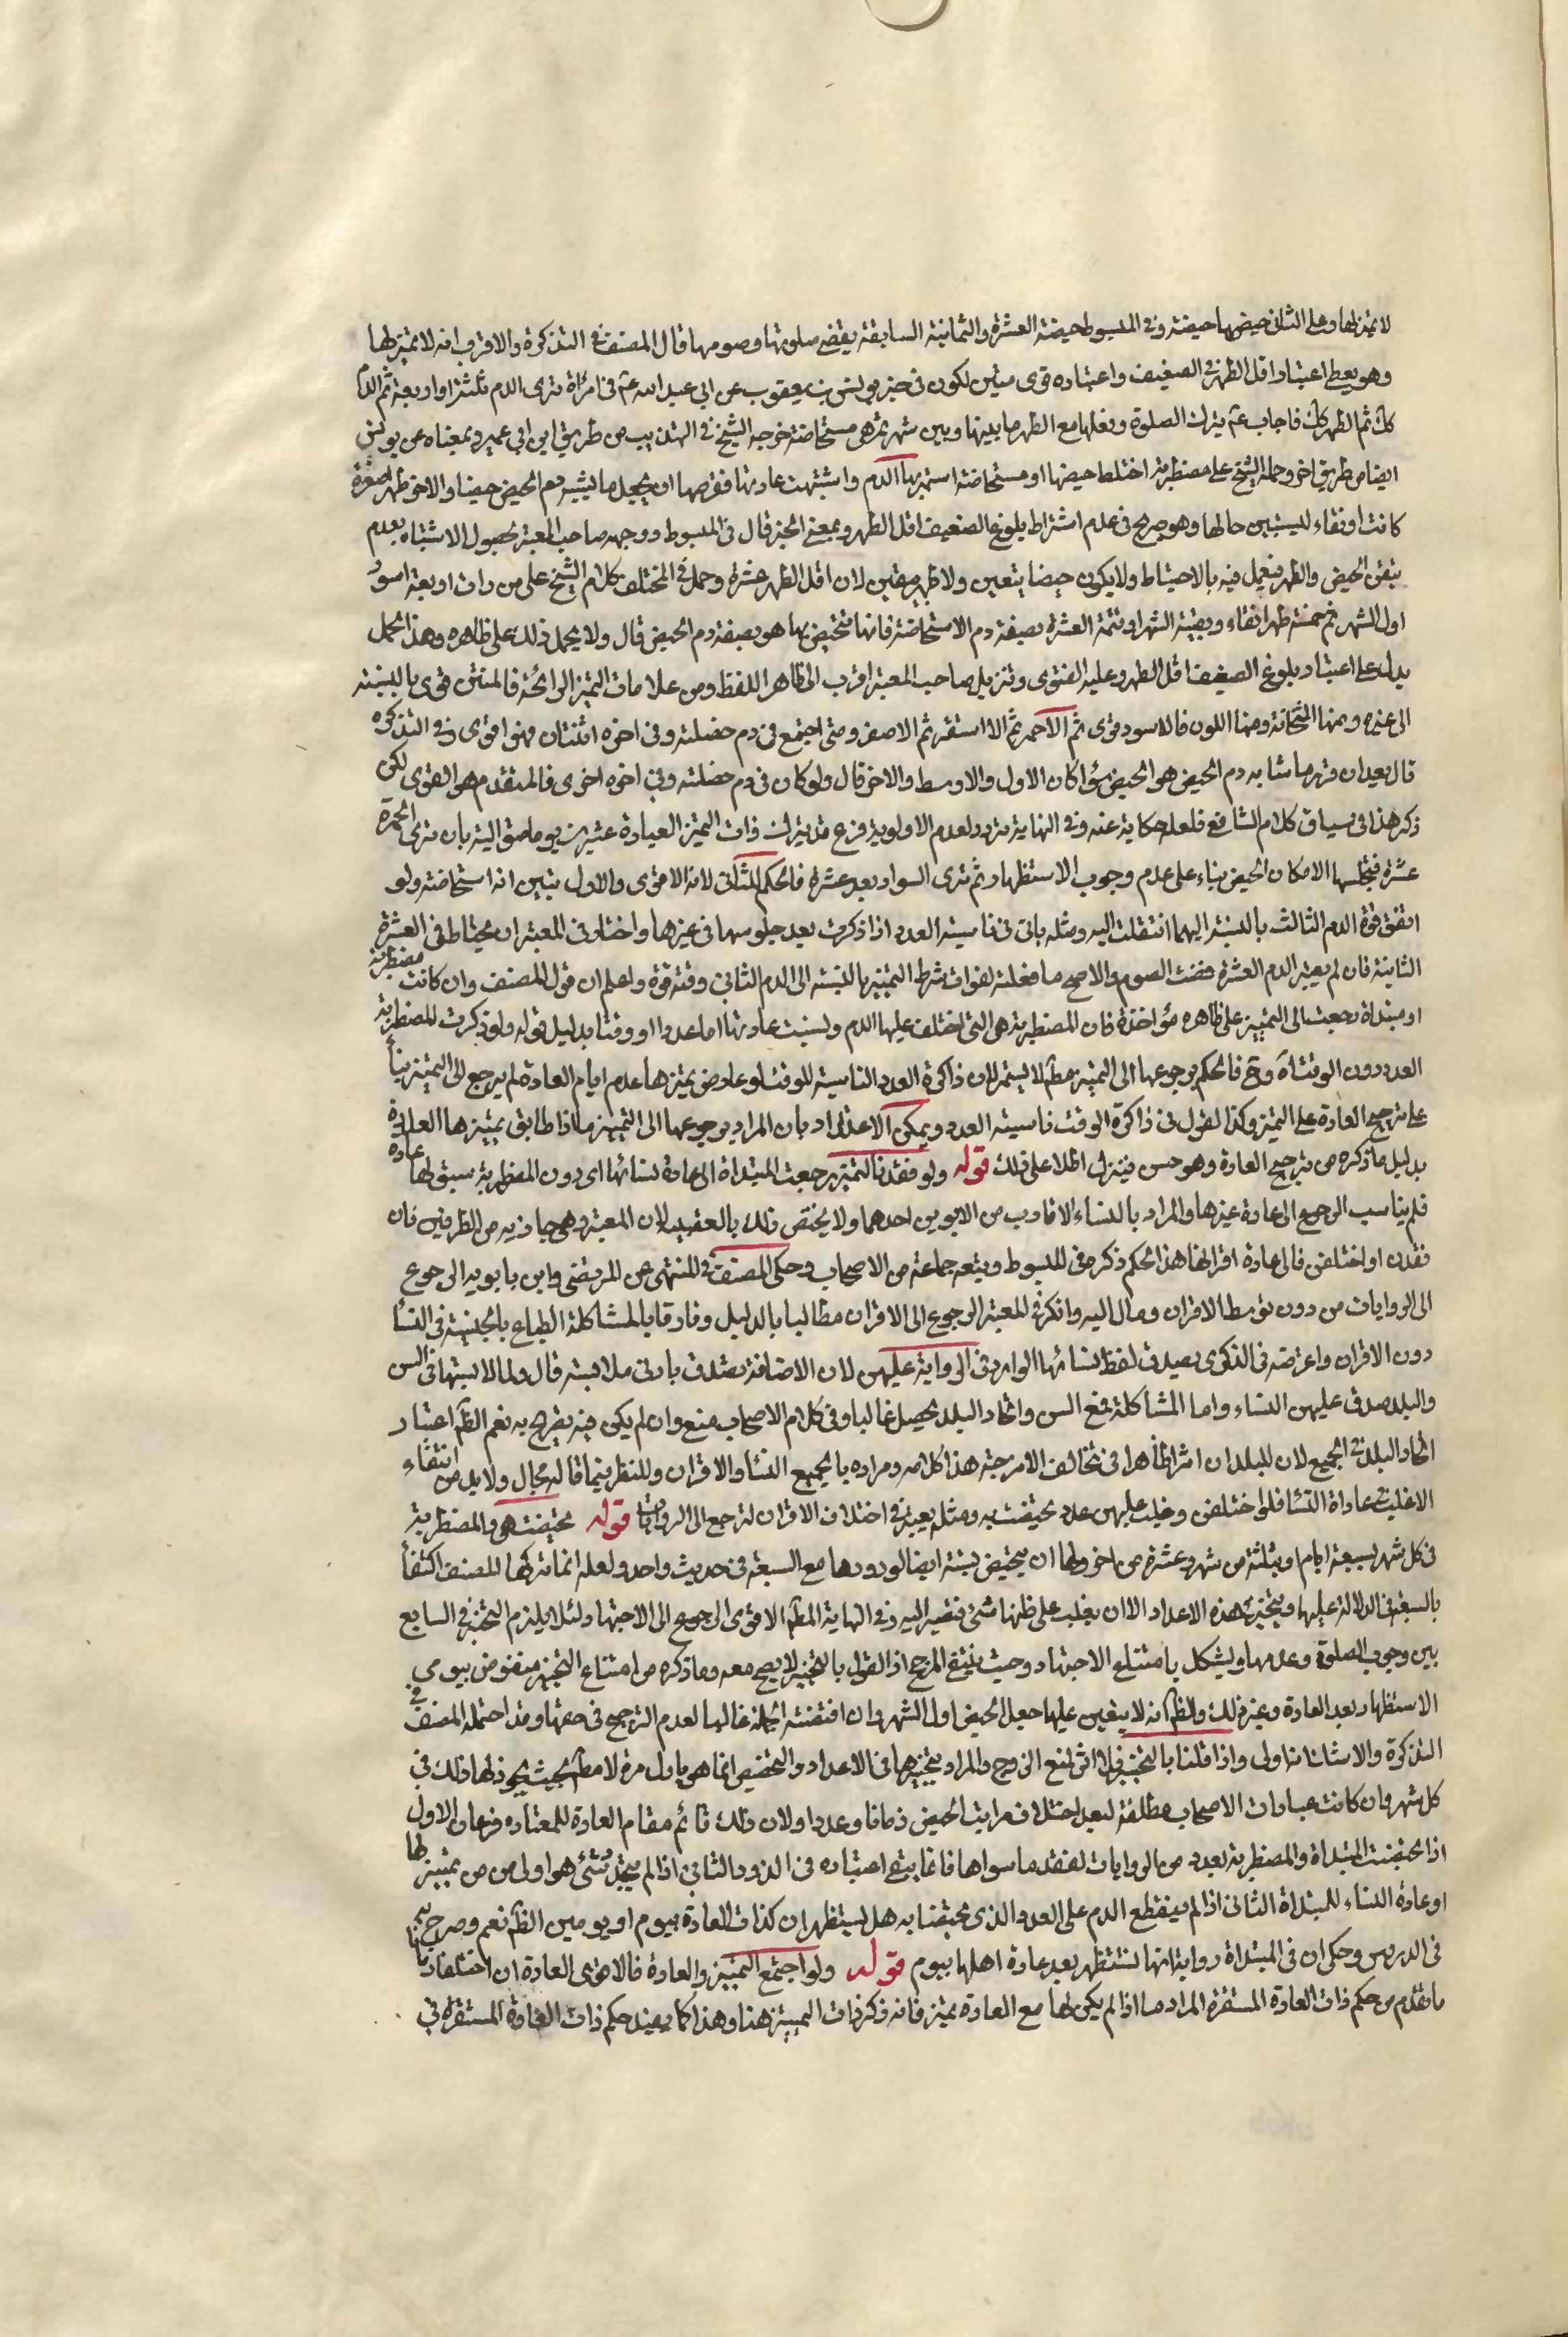 لا تميز لها وعلى الثاني حيضها خمسة وفي المبسوط حيضة العشرة والثمانية السابقة يقضي صلوتها وصومها قال المصنف في التذكرة والاقرب انه لا تميز لها
وهو يعطي اعتبار اقل الطهر في الضعيف واعتباره قوى متين لكون في خبر يونس بن يعقوب عن ابي عبد الله عم في امرأة ترى الدم ثلثة او اربعة ثم الدم
كك ثم الطهر كك فاجاب عم بترك الصلوة وفعلها مع الطهر ما بينها وبين شهر ثم هي مستحاضة خرجه الشيخ في التهذيب من طريق ابن ابي عمير وبمعناه عن يونس
ايضا من طريق اخر وحمله الشيخ على مضطربة اختلط حيضها او مستحاضة استمر بها الدم واشتبهت عادتها ففرضها ان يجعل ما يشبه دم الحيض حيضا والاخر طهرا صفرة
كانت او نقاء ليستبين حالها وهو صريح في عدم اشتراط بلوغ الضعيف اقل الطهر وبمعنى الخبر قال في المبسوط ووجهه صاحب المعتبر لحصول الاشتباه بعدم
تيقن الحيض والطهر فيعمل فيه بالاحتياط ولا يكون حيضا بتعين ولا طهر متيقن لان اقل الطهر عشرة وحمل في المختلف كلام الشيخ على من رات اربعة اسود
اول الشهر ثم خمسة طهرا نقاء وبقية الشهر او تتمة العشرة بصفة دم الاستحاضة فانها تتحيض بها هو بصفة دم الحيض قال ولا يحمل ذلك على ظاهره وهذا الحمل
يدل على اعتبار بلوغ الضعيف اقل الطهر وعليه الفتوى وتنزيل صاحب المعتبر اقرب الى ظاهر اللفظ ومن علامات التميز الرائحة فالمنتن قوى بالنسبة
الى غيره ومنها الثخانة ومنها اللون فالاسود قوى ثم الاحمر ثم الاشقر ثم الاصفر ومتى اجتمع في دم خصلة وفي اخره اثنتان فهو اقوى وفي التذكره
قال بعد ان قرر ما شابه دم الحيض هو الحيض سواء كان الاول والاوسط والاخر قال ولو كان في دم خصلة وفي اخره اخرى فالمتقدم هو القوى لكن
ذكر هذا في سياق كلام الشافعي فلعله حكاية عنه وفي النهاية تردد لعدم الاولوية فرع قد تترك ذات التميز العبادة عشرين يوما متوالية بان ترى الحمرة
عشرة فتجلسها لامكان الحيض بناء على عدم وجوب الاستظهار ثم ترى السواد بعد عشرة فالحكم للثاني لانه الاقوى والاول يتبين انه استحاضة ولو
اتفق قوة الدم الثالث بالنسبة اليهما انتقلت اليه ومثله ياتي في ناسية العدد اذا ذكرت بعد جلوسها في غيرها واختار في المعتبر ان تحتاط في العشرة
الثانية فان لم يعبر الدم العشرة قضت الصوم والاصح ما فعلته لفوات شرط التميز بالنسبة الى الدم الثاني وقته قوة واعلم ان قول المصنف وان كانت مضطربة
او مبتداة رجعت الى التمييز على ظاهره مؤاخذة فان المضطربة هي التي اختلف عليها الدم ونسيت عادتها اما عددا او وقتا بدليل قوله ولو ذكرت المضطربة
العدد دون الوقت اه وح فالحكم برجوعها الى التميز مطلقا لا يستمر لان ذاكرة العدد الناسية للوقت لو عارض تميزها عدم ايام العادة لم يرجع الى التميز بناء
على ترجيح العادة على التميز وكذا القول في ذاكرة الوقت ناسية العدد ويمكن الاعتذار بان المراد برجوعها الى التمييز ما اذا طابق تميزها العادة
بدليل ما ذكره من ترجيح العادة وهو حسن فينزل اطلاعلى ذلك قوله ولو فقدتا التميز رجعت المبتداة الى عادة نسائها اي دون المضطربة سبق لها عادة
فلم يناسب الرجوع الى عادة غيرها والمراد بالنساء الاقارب من الابوين احدهما ولا يختص ذلك بالعقب لان المعتبر وهي جاذبه من الطرفين فان
فقدن او اختلفن فالى عادة اقرانها هذا الحكم ذكره في المبسوط وتبعه جماعة من الاصحاب وحكى المصنف في المنتهى عن المرتضى وابن بابويه الرجوع
الى الروايات من دون توسط الاقران ومال اليه وانكر في المعتبر الرجوع الى الاقران مطالبا بالدليل وفارقا بالمشاكلة الطباع بالجنسية في النسا
دون الاقران واعترضه في الذكرى بصدق لفظ نسائها الوارد في الرواية عليهن لان الاضافة تصدق بادنى ملابسة قال ولما لابستها في السن
والبلد صدق عليهن النساء واما المشاكلة فمع السن واتحاد البلد تحصل غالبا وفي كلام الاصحاب منع وان لم يكن فيه تصريح به نعم الظ اعتبار
اتحاد البلد في الجميع لان للبلدان اثرا ظاهرا في تخالف الامزجة هذا كلامه ومراده بالجميع النسا والاقران وللنظر فيما قاله مجال ولا بد من انتفاء
الاغلبية عاداة النسا فلو اختلفن وغلب عليهن عدد تحيضت به ومثله يعتبر في اختلاف الاقران لترجع الى الروايات قوله تحيضت هي والمضطربة
في كل شهر بسبعة ايام او بثلثة من شهر وعشرة من اخر ولها ان تتحيض بستة ايضا لورودها مع السبعة في حديث واحد ولعله انما تركها المصنف اكتفا
بالسبعة في الدلالة عليها وتتخير هذه الاعداد الا ان يغلب على ظنها شئ فتصير اليه وفي النهاية المط الاقوى الرجوع الى الاجتهاد ولئلا يلزم التخير في السابع
بين وجوب الصلوة وعدمها ويشكل بامتناع الاجتهاد وحيث ينتفي المرجح اذ القول بالتخيير لا يصح معه وما ذكره من امتناع التخير منقوض بيومي
الاستظهار بعد العادة وغير ذلك والظ انه لا يتعين عليها جعل الحيض اول الشهر وان اقتضته الجبلة غالبا لعدم الترجيح في حقها وقد احتمله المصنف في
التذكرة والاستئناف اولى واذا قلنا بالتخير فلا اثر لمنع الزوج والمراد بتخيرها في الاعداد والتخصيص انما هو باول مرة لا مط بحيث يجوز لها ذلك في
كل شهر وان كانت عبارات الاصحاب مطلقة لبعد اختلاف مراتب الحيض زمانا وعددا ولان ذلك قائم مقام العادة للمعتاده فرعان الاول
اذا تحيضت المبتداة والمضطربة بعدد من الروايات لفقد ما سواها فانما يتبع اعتباره في الدور الثاني اذا لم يتجدد شئ هو اولى من من تمييز لها
او عادة النساء للمبتداة الثاني اذا لم ينقطع الدم على العدد الذي تحيضتا به هل يستظهران كذات العادة بيوم او يومين الظ نعم وصرح به
في الدروس وحكى ان في المبتداة رواية انها تستظهر بعد عادة اهلها بيوم قوله ولو اجتمع التمييز والعادة فالاقوى العادة ان اختلفا زمانا
ما تقدم من حكم ذات العادة المستقرة المراد ما اذا لم يكن لها مع العادة تميز فانه ذكر ذات التمييز هنا وهذا كما يفيد حكم ذات العادة المستقرة في